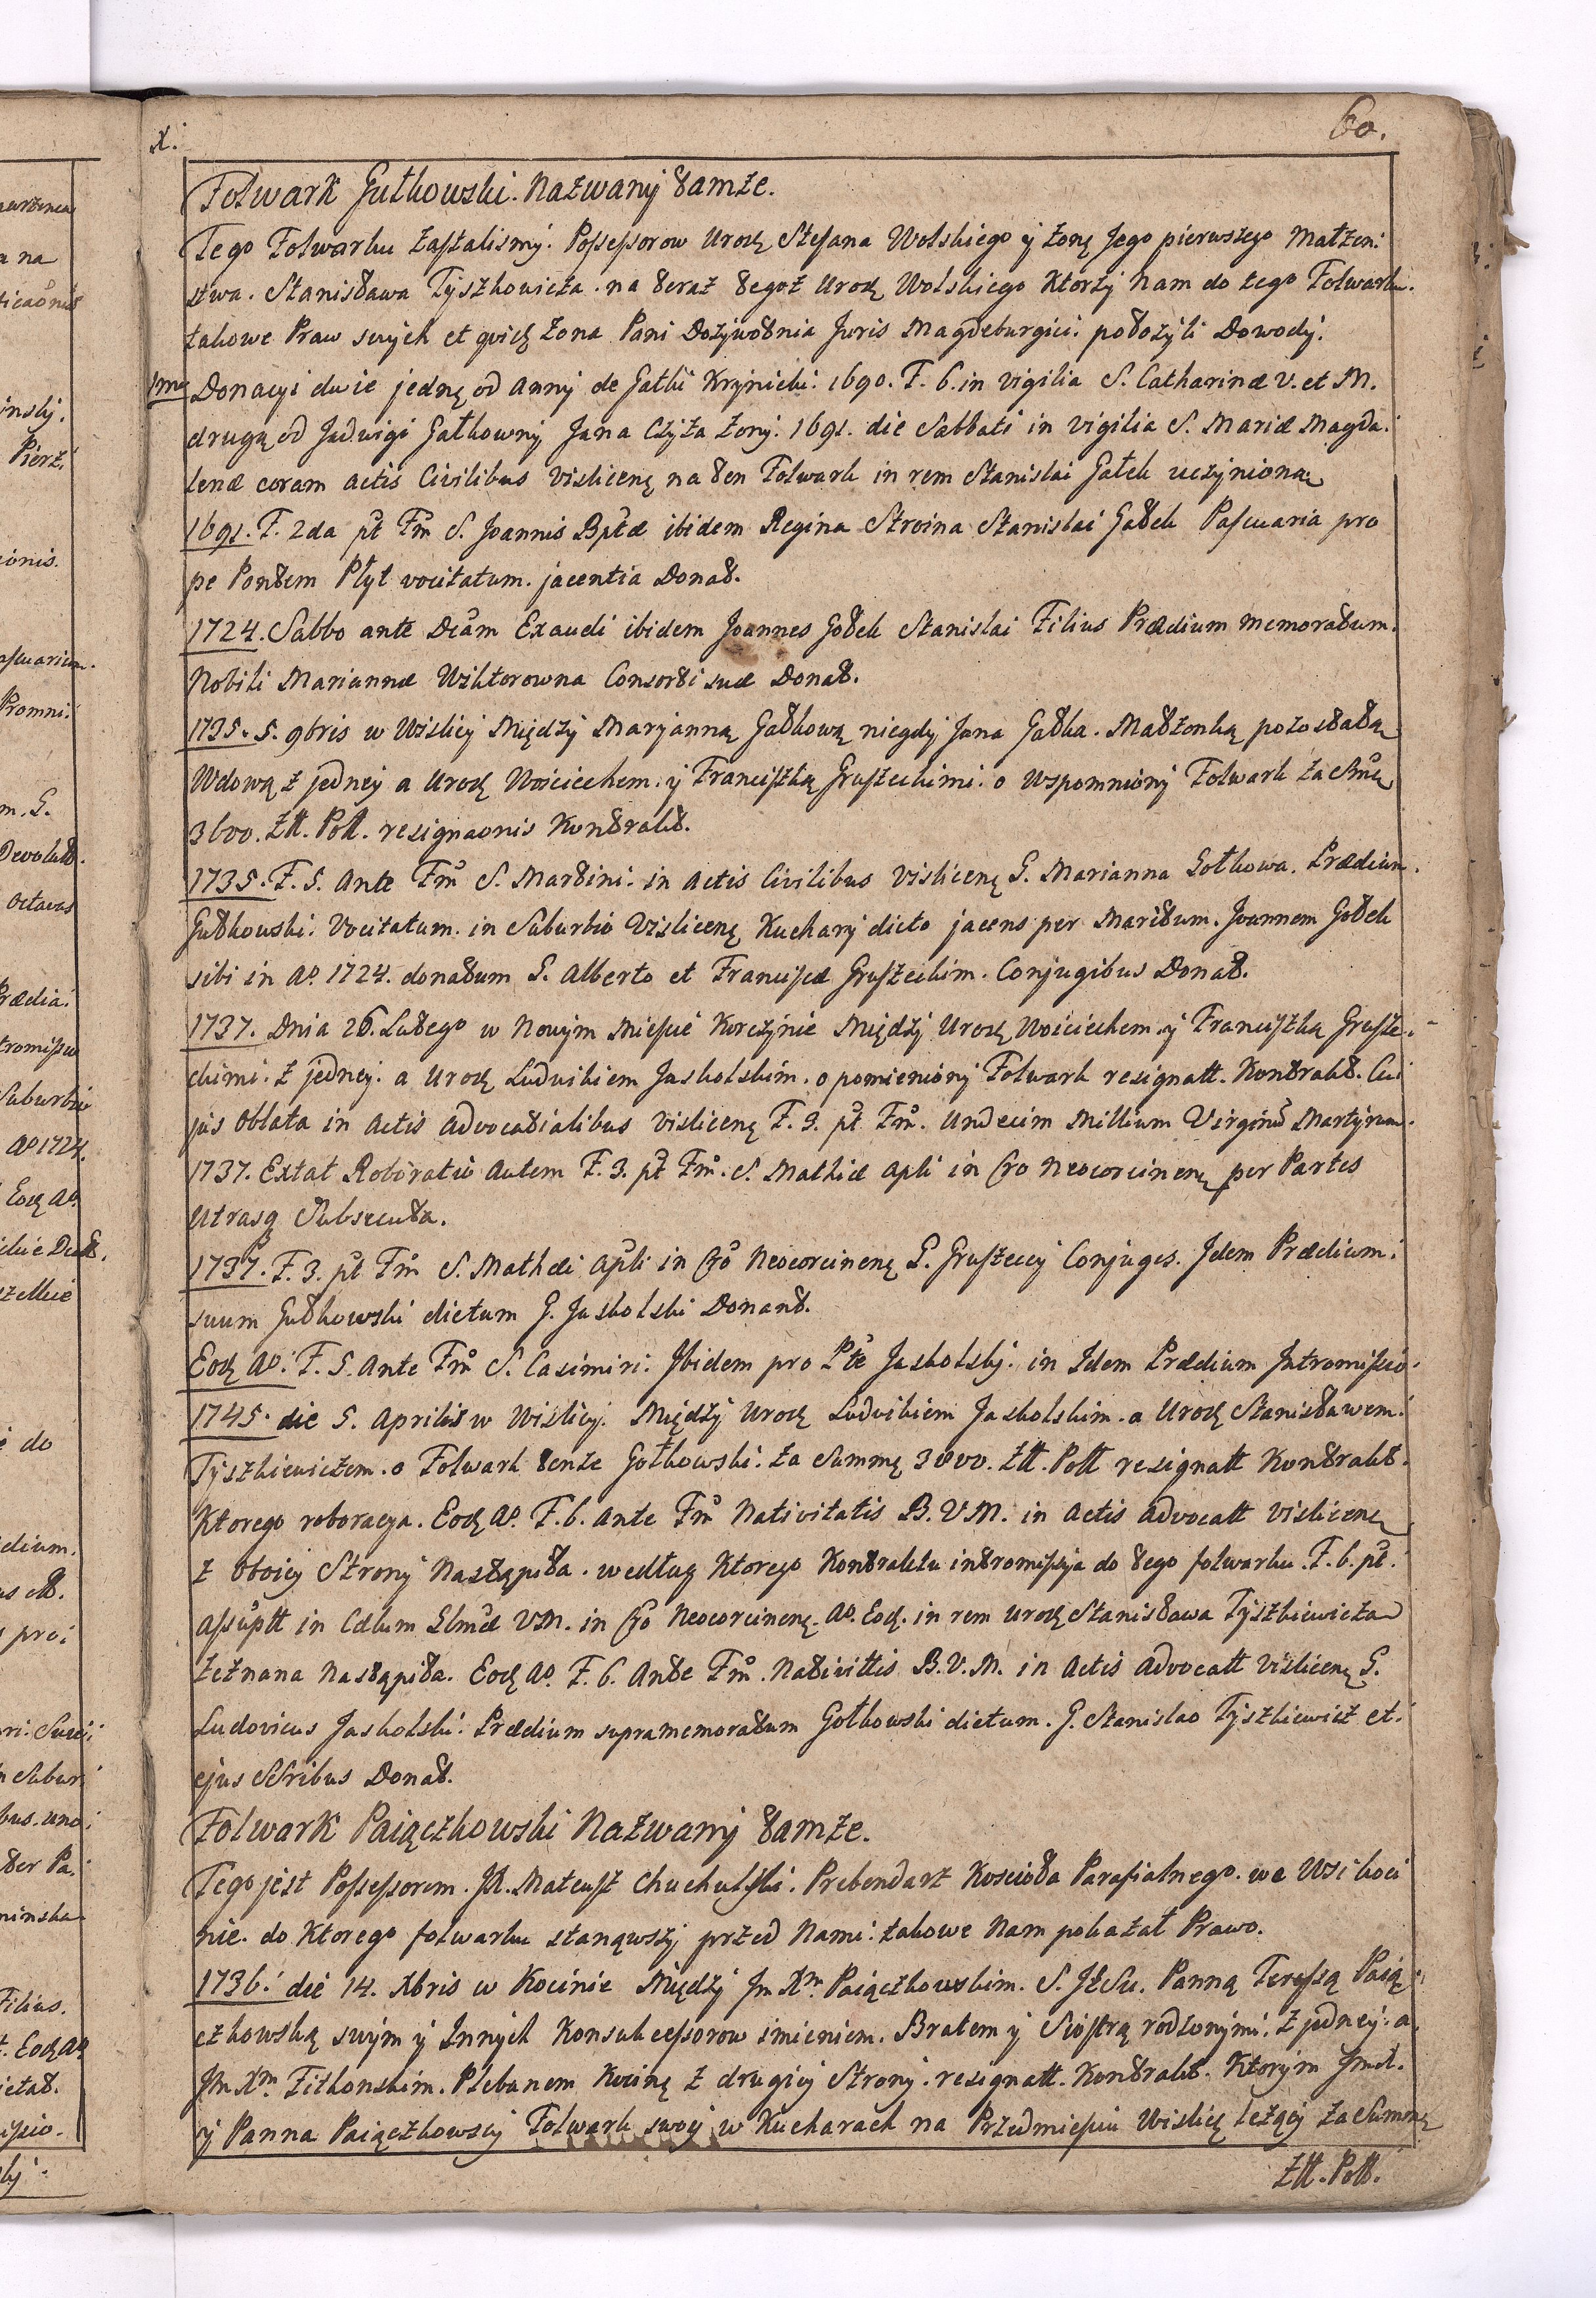 x.
60.
Folwark Gutkowski. Nazwany tamze.
Tego Folwarku zastalismy. Possessorow Urod Stefana Wolskiego y zonę Jego pierwszego Matzen:
stwa. Stanisława Tyszkowicza. na teraz tegoz Urod Wolskiego Ktorzy Nam do tego Folwarku.
takowe Praw swych et qvid zona Pani Dozywotnia Juris Magdeburgici. położyli Dowody.
1mo Donacyi dwie jednę od Anny de Gatki Krynicki. 1690. F. 6. in vigilia S. Catharinæ V. et M.
drugą od Jadwigi Gatkowny Jana Czyza zony. 1691. die Sabbati in vigilia S. Mariæ Magda:
lenæ coram actis Civilibus Vislicen na ten Folwark in rem Stanislai Gatek uczyniona
1691. F. 2da pt Fm S. Joannis Bptæ ibidem Regina Stroina Stanislai Gatek Pascuaria pro
pe Pontem Płyt vocitatum. jacentia Donat.
1724. Sabbo ante Dcam Exaudi ibidem Joannes Gotek Stanislai Filius Prædium memoratum.
Nobili Mariannæ Wiktorowna Consorti suæ Donat.
1735. 5. 9bris w Wislicy Między Maryanną Gatkową niegdy Jana Gatka. Małżonką pozostałą
Wdową z jedney a Urod Woiciechem. y Franciszką Gruszeckimi. o Wspomniony Folwark za Smę
3600. Złł. Poll. resignaonis Kontrakt.
1735. F. 5. Ante Fm S. Martini. in Actis Civilibus Vislicen G. Marianna Gotkowa. Prædium.
Gutkowski. Vocitatum. in Suburbio Vislicen Kuchary dicto jacens per Maritum. Joannem Gotek
sibi in Ao 1724. donatum G. Alberto et Franciscæ Gruszeckim. Conjugibus Donat.
1737. Dnia 26. Lutego w Nowym Miescie Korczynie Między Urod Woiciechem y Franciszką Grusze.
ckimi. z jedney. a Urod Ludwikiem Jaskolskim. o pomieniony Folwark resignatt. Kontrakt. Cu:
jus Oblata in Actis Advocatialibus Vislicen F. 3. pt Fm. Undecim Millium Virginu Martyrum.
1737. Extat Roboratio Autem F. 3. pt Fm. S. Mathiæ Apli in Cro Neocorcinen per Partes
Utrasq Subsecuta.
1737. F. 3. pt Fm S. Mathæi Apli in Cro Neocorcinen G. Gruszeccy Conjuges. Idem Prædium.
suum Gutkowski dictum G. Jaskolski Donant.
Eod Ao. F. 5. Ante Fm S. Casimiri. Ibidem pro Pte Jaskolsky. in Idem Prædium Intromissio.
1745. die 5. Aprilis w Wislicy. Między Urod Ludwikiem Jaskolskim. a Urod Stanisławem.
Tyszkiewiczem. o Folwark tenze Gotkowski. za Summę 3000. Złł. Poll resignatt Kontrakt.
Ktorego roboracya. Eod Ao. F. 6. Ante Fm Nativitatis B. V. M. in Actis Advocatt Vislicen
z oboiey Strony Nastąpiła. według Ktorego Kontraktu intromissya do tego folwarku. F. 6. pt.
Assuptt in Cælum Elmæ VM. in Cro Neocorcinen. Ao. Eod. in rem Urod Stanisława Tyszkiewicza
Zeznana Nastąpiła. Eod Ao. F. 6. Ante Fm. Nativittis B. V. M. in Actis Advocatt Vislicen G.
Ludovicus Jaskolski. Prædium supramemoratum Gotkowski dictum. G. Stanislao Tyszkiewicz et.
ejus Sschribus Donat.
Folwark Paiączkowski Nazwany tamze.
Tego jest Possessorem. JX. Mateusz Chuchulski. Prebendarz Kościoła Parafialnego. we Wsi Koci
nie. do Ktorego folwarku stanąwszy przed Nami. takowe Nam pokazał Prawo.
1736. die 14. Xbris w Kocinie Między Jm Xm Paiączkowskim. S. JZSu. Panną Teressą Pają:
czkowską swym y Innych Konsukcessorow imieniem. Bratem y Siostrą rodzonymi. z jedney. a.
Jm Xm Zitkonskim. Plebanem Kocin z drugiey Strony. resignatt. Kontrakt. Ktorym Jmx.
y Panna Paiączkowscy Folwark swoy w Kucharach na Przedmiesciu Wislic lezący za Summę
Złł. Poll.